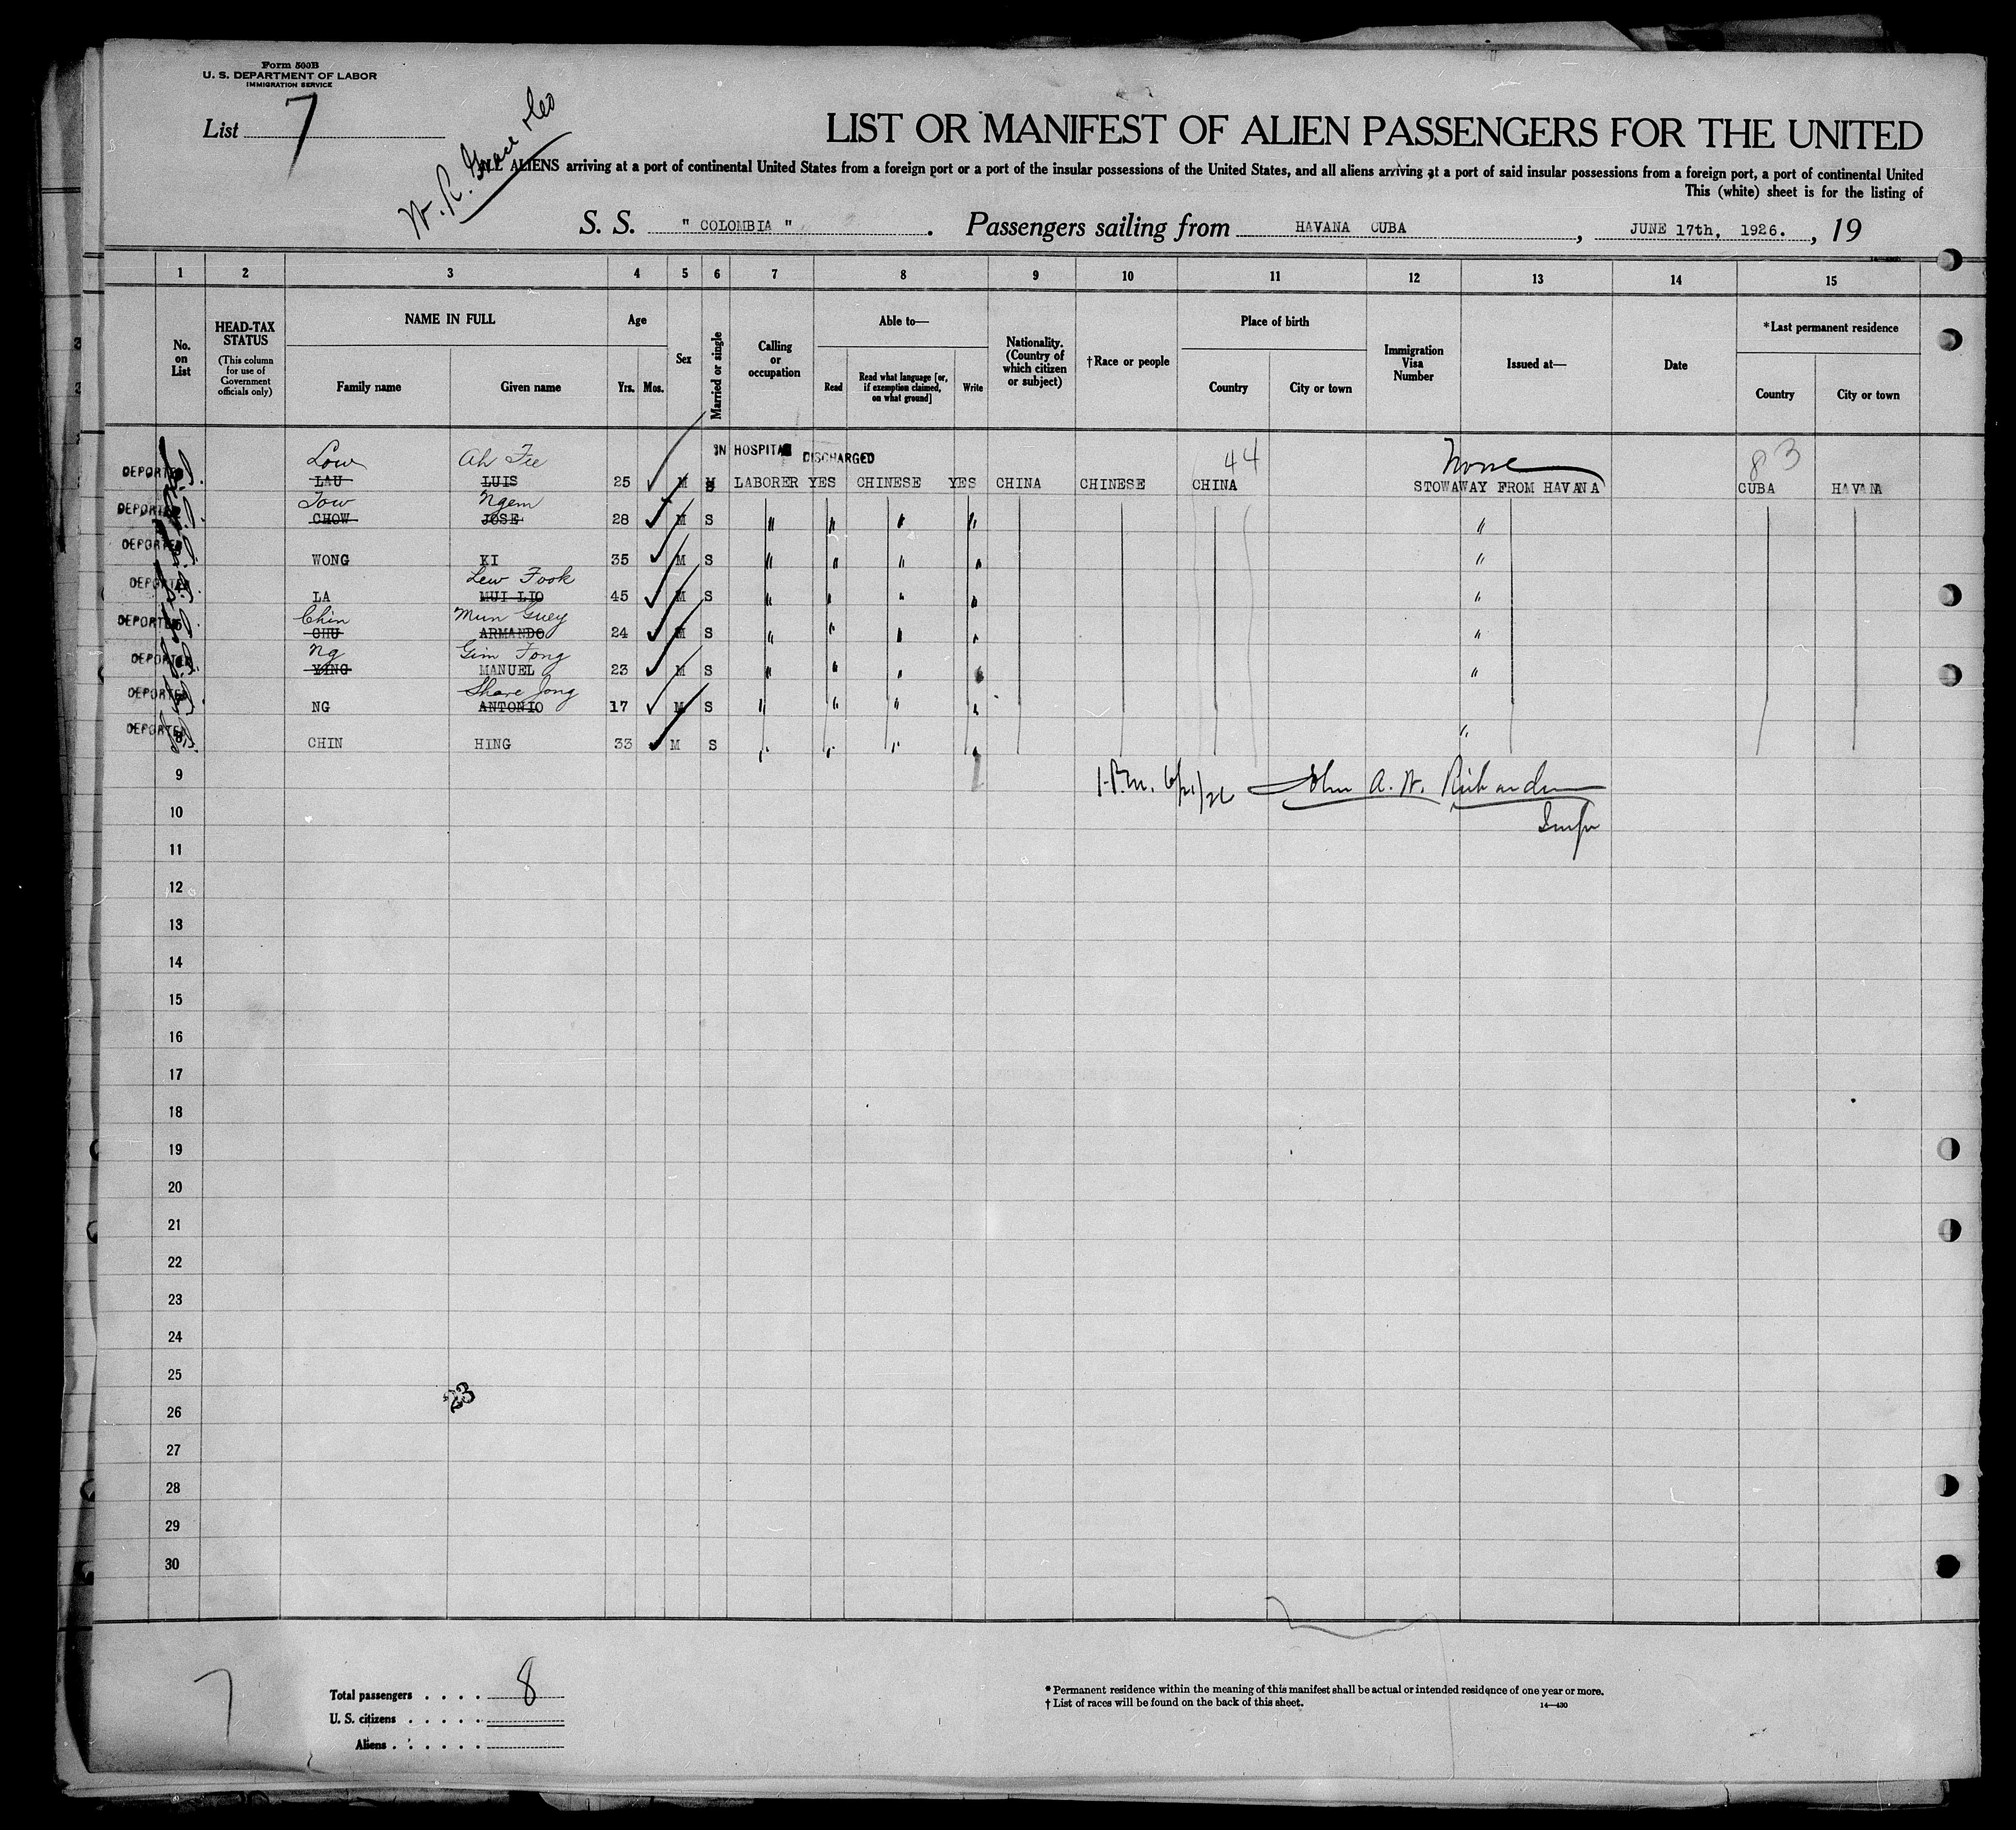 Form 500B
U. S. DEPARTMENT OF LABOR
IMMIGRATION SERVICE
List 7
W. R. Grace & Co
LIST OR MANIFEST OF ALIEN PASSENGERS FOR THE UNITED
ALL ALIENS arriving at a port of continental United States from a foreign port or a port of the insular possessions of the United States, and all aliens arriving at a port of said insular possessions from a foreign port, a port of continental United
This (white) sheet is for the listing of
S. S. " COLOMBIA " . Passengers sailing from HAVANA CUBA , JUNE 17th, 1926. , 19
1 2 3 4 5 6 7 8 9 10 11 12 13 14 15
No. on List
HEAD-TAX STATUS
(This column for use of Government officials only)
NAME IN FULL
Family name Given name
Age
Yrs. Mos.
Sex
Married or single
Calling or occupation
Able to—
Read Read what language [or, if exemption claimed, on what ground] Write
Nationality. (Country of which citizen or subject)
†Race or people
Place of birth
Country City or town
Immigration Visa Number
Issued at—
Date
*Last permanent residence
Country City or town
IN HOSPITAL DISCHARGED
Low Ah Fee 44 None 83
DEPORTED LAU LUIS 25 M S LABORER YES CHINESE YES CHINA CHINESE CHINA STOWAWAY FROM HAVANA CUBA HAVANA
Tow Ngem
DEPORTED CHOW JOSE 28 M S " " " " "
DEPORTED WONG KI 35 M S " " " " "
Lew Fook
DEPORTED LA MUI LIO 45 M S " " " " "
Chin Mun Guey
DEPORTED CHU ARMANDO 24 M S " " " " "
Ng Gim Fong
DEPORTED YING MANUEL 23 M S " " " " "
Share Jong
DEPORTED NG ANTONIO 17 M S " " " "
DEPORTED 8 CHIN HING 33 M S " " " " "
9
1 P.m. 6/21/26 John A. W. Richardson
10
Insp
11
12
13
14
15
16
17
18
19
20
21
22
23
24
25
26
23
27
28
29
30
7
Total passengers . . . . 8
U. S. citizens . . . . .
Aliens . . . . . .
* Permanent residence within the meaning of this manifest shall be actual or intended residence of one year or more.
† List of races will be found on the back of this sheet. 14—430